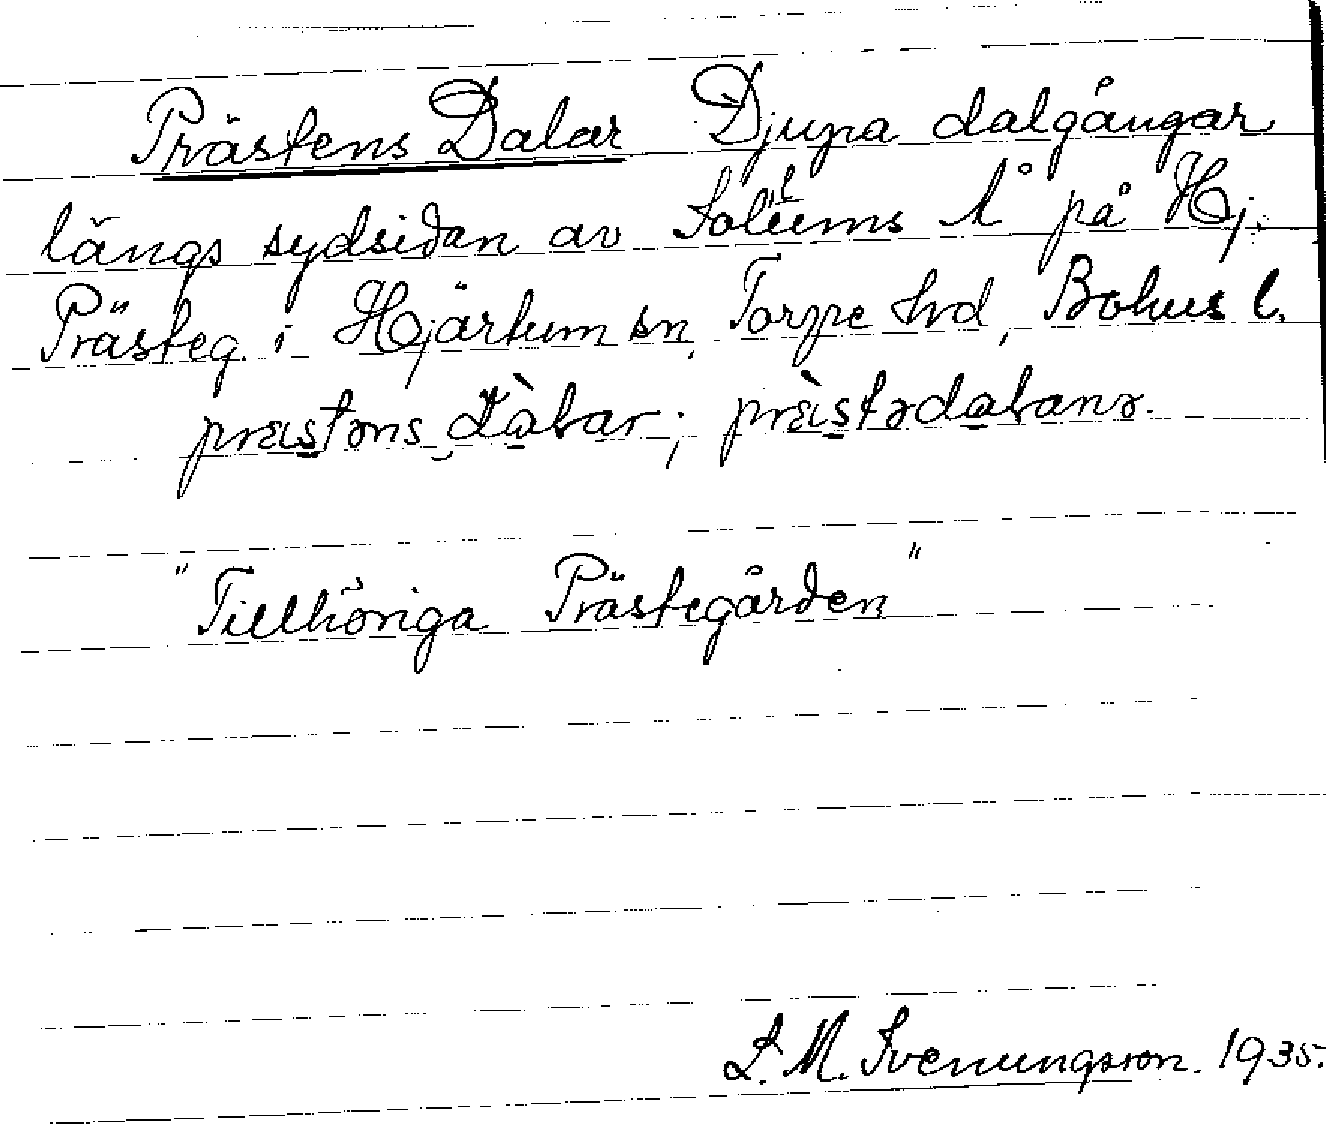 Prästens Dalar Djupa dalgångar
längs sydsidan av Soltums Å på Hj.
Prästeg. i Hjärtum sn, Torpe hrd, Bohus l.
præstəns dàlar; præ̀stədalanə.
"Tillhöriga Prästegården"
S. M. Svenungsson. 1935.